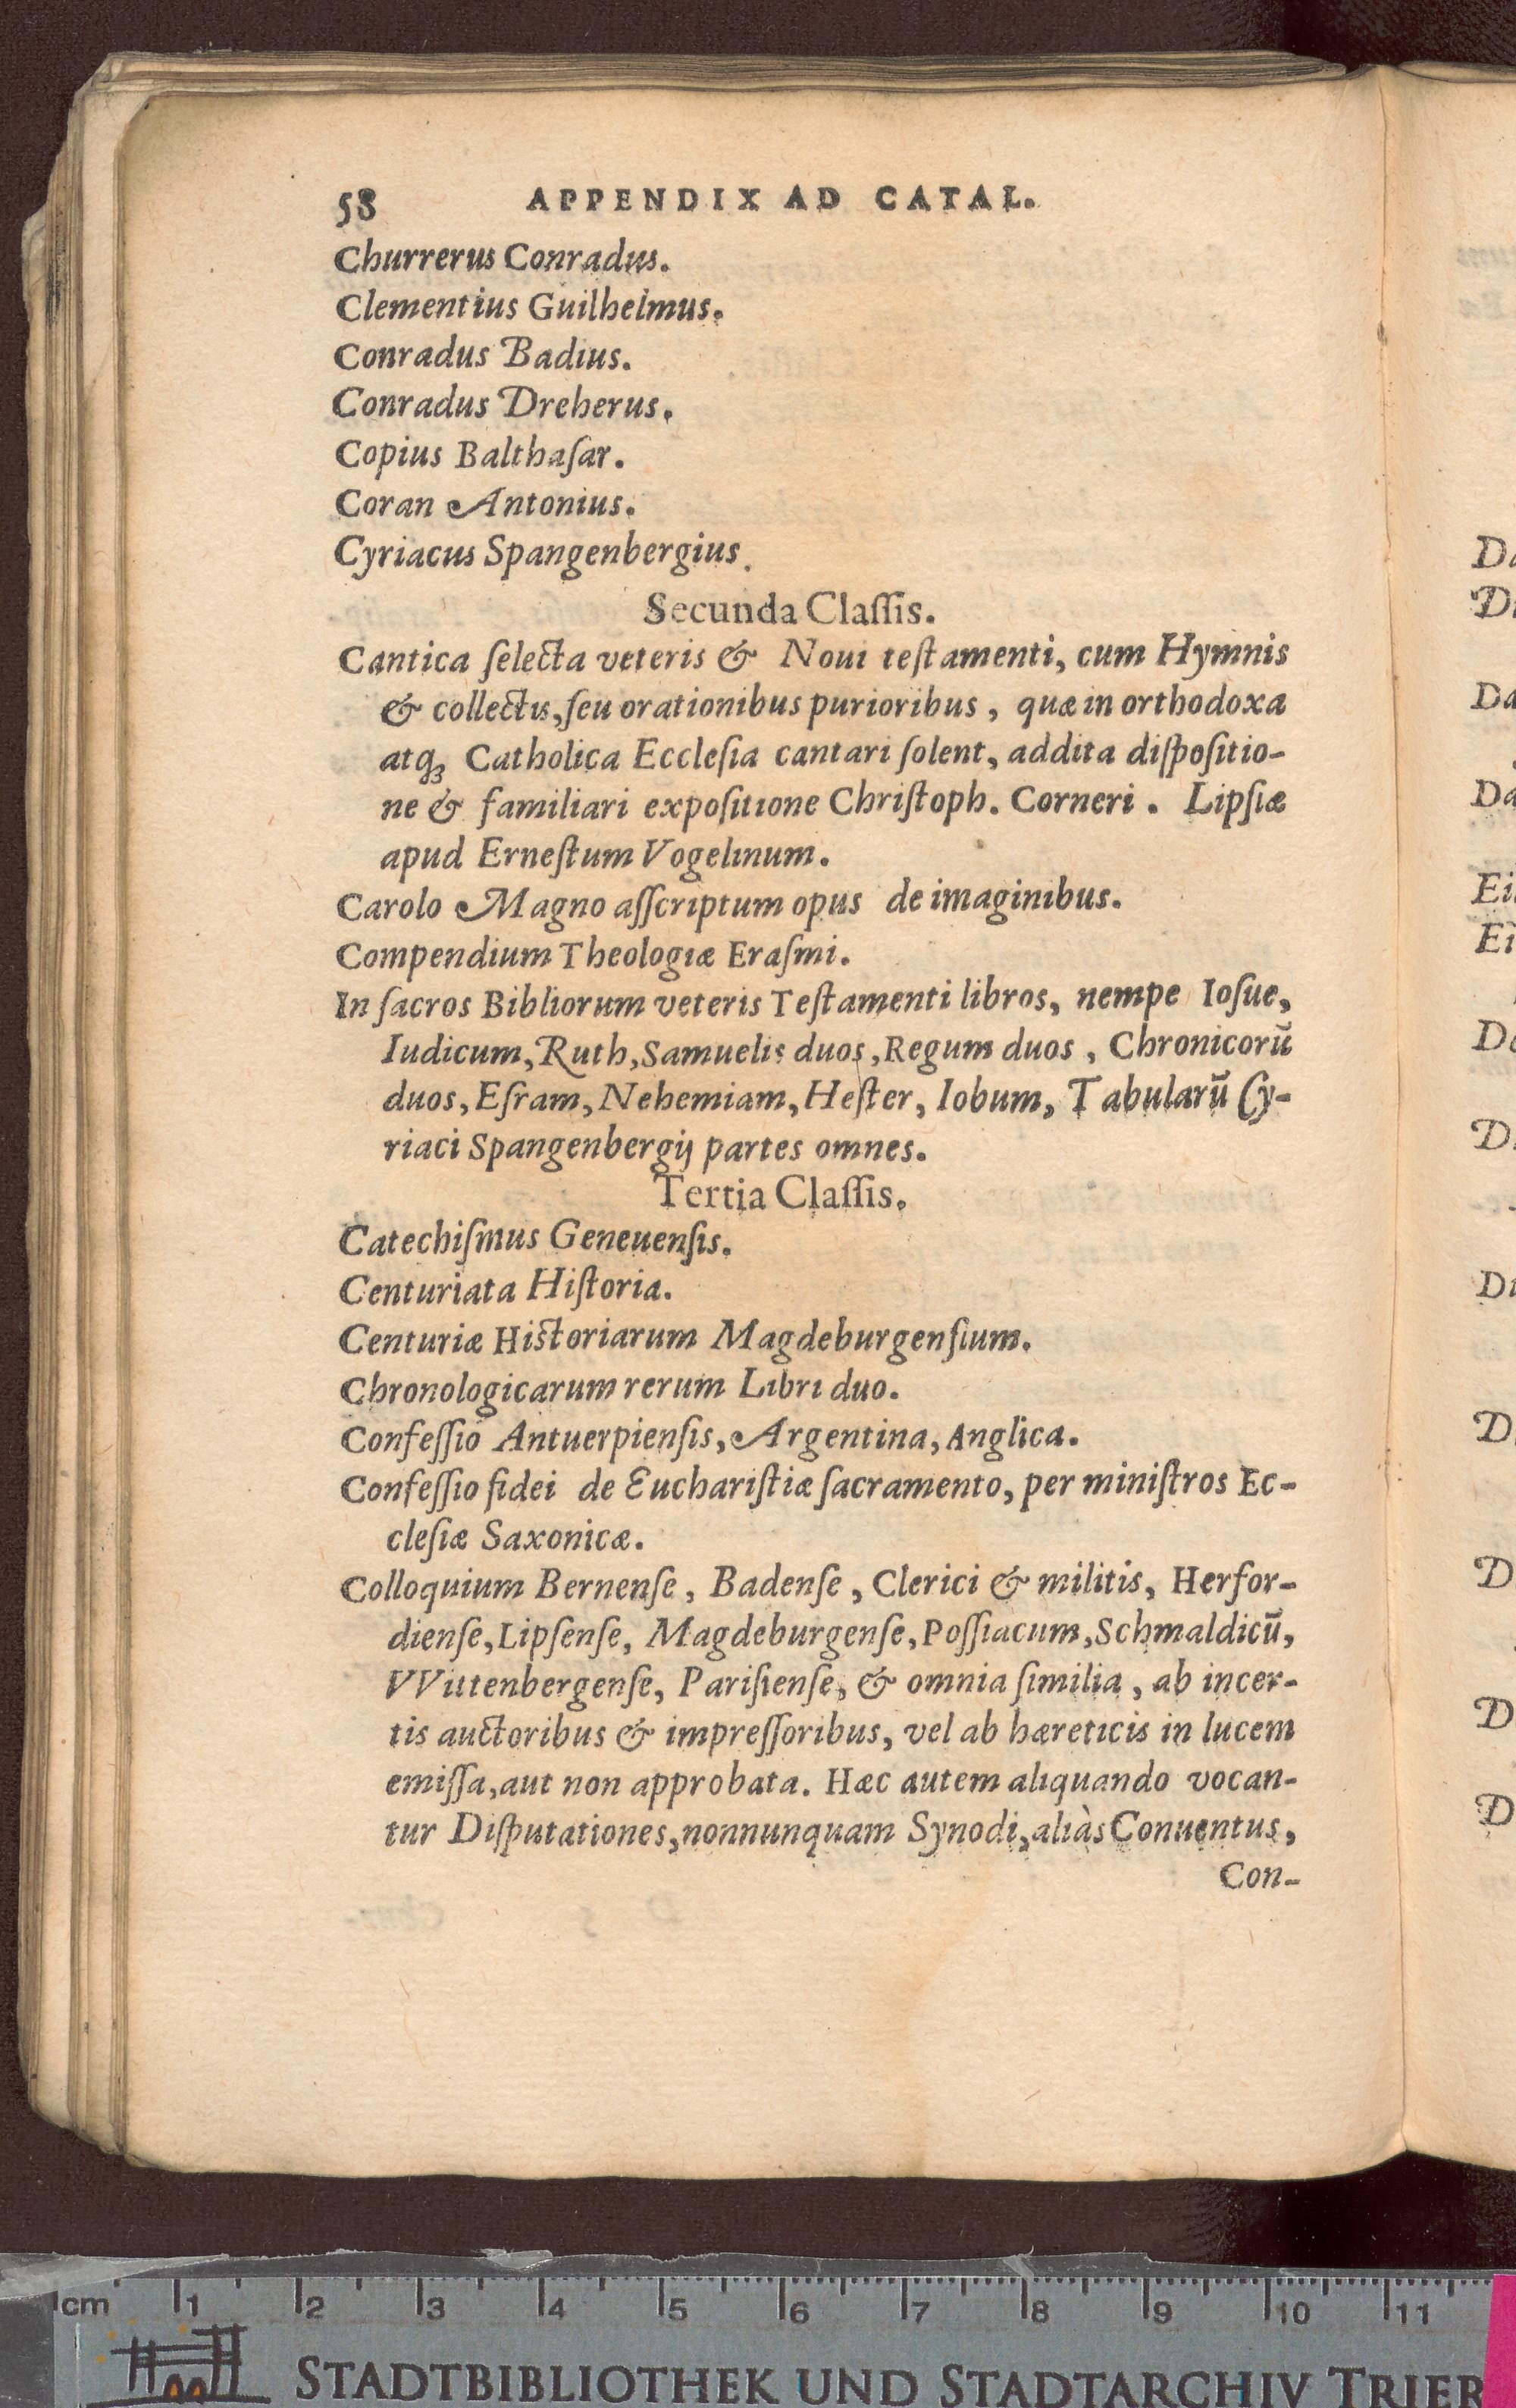 58 APPENDIX AD CATAL.
Churrerus Conradus.
Clementius Guilhelmus.
Conradus Badius.
Conradus Dreherus.
Copius Balthaſar.
Coran Antonius.
Cyriacus Spangenbergius.
Secunda Claſſis.
Cantica ſelecta veteris & Noui teſtamenti, cum Hymnis
& collectis, ſeu orationibus purioribus, quæ in orthodoxa
atq́ꝫ Catholica Eccleſia cantari ſolent, addita diſpoſitio-
ne & familiari expoſitione Chriſtoph. Corneri. Lipſiæ
apud Erneſtum Vogelinum.
Carolo Magno aſſcriptum opus de imaginibus.
Compendium Theologiæ Eraſmi.
In ſacros Bibliorum veteris Teſtamenti libros, nempe Ioſue,
Iudicum, Ruth, Samuelis duos, Regum duos, Chronicorū
duos, Eſram, Nehemiam, Heſter, Iobum, Tabularū Cy-
riaci Spangenbergij partes omnes.
Tertia Claſſis.
Catechiſmus Geneuenſis.
Centuriata Hiſtoria.
Centuriæ Hiſtoriarum Magdeburgenſium.
Chronologicarum rerum Libri duo.
Confeſſio Antuerpienſis, Argentina, Anglica.
Confeſſio fidei de Euchariſtiæ ſacramento, per miniſtros Ec-
cleſiæ Saxonicæ.
Colloquium Bernenſe, Badenſe, Clerici & militis, Herfor-
dienſe, Lipſenſe, Magdeburgenſe, Poſſiacum, Schmaldicū,
VVittenbergenſe, Pariſienſe, & omnia ſimilia, ab incer-
tis auctoribus & impreſſoribus, vel ab hæreticis in lucem
emiſſa, aut non approbata. Hæc autem aliquando vocan-
tur Diſputationes, nonnunquam Synodi, aliàs Conuentus,
Con-
cm 1 2 3 4 5 6 7 8 9 10 11
STADTBIBLIOTHEK UND STADTARCHIV TRIER